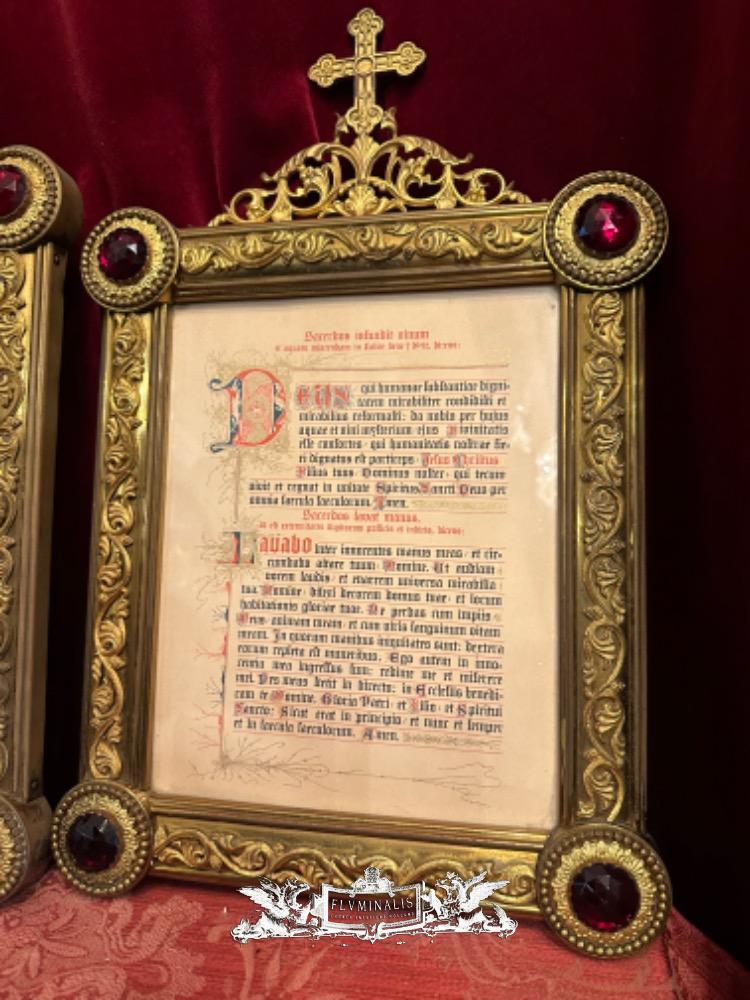 Sacerdos infundit vinum
et aquam miscendam in
Deus qui humanae substantiae digni-
tatem mirabiliter condidisti et
mirabilius reformasti: da nobis per hujus
aquae et vini mysterium ejus Divinitatis
esse consortes, qui humanitatis nostrae fie-
ri dignatus est particeps, Jesus Christus
Filius tuus, Dominus noster: qui tecum
vivit et regnat in unitate Spiritus Sancti Deus per
omnia saecula saeculorum. Amen.
Sacerdos lavat manus,
dicens:
Lavabo inter innocentes manus meas: et cir-
cumdabo altare tuum: Domine. Ut audiam
vocem laudis: et enarrem universa mirabilia
tua. Domine, dilexi decorem domus tuae: et locum
habitationis gloriae tuae. Ne perdas cum impiis
Deus: animam meam: et cum viris sanguinum vitam
meam. In quorum manibus iniquitates sunt: dextera
eorum repleta est muneribus. Ego autem in inno-
centia mea ingressus sum: redime me et miserere
mei. Pes meus stetit in directo: in Ecclesiis benedi-
cam te Domine. Gloria Patri: et Filio: et Spiritui
Sancto: Sicut erat in principio: et nunc et semper
et in saecula saeculorum. Amen.
FLVMINALIS